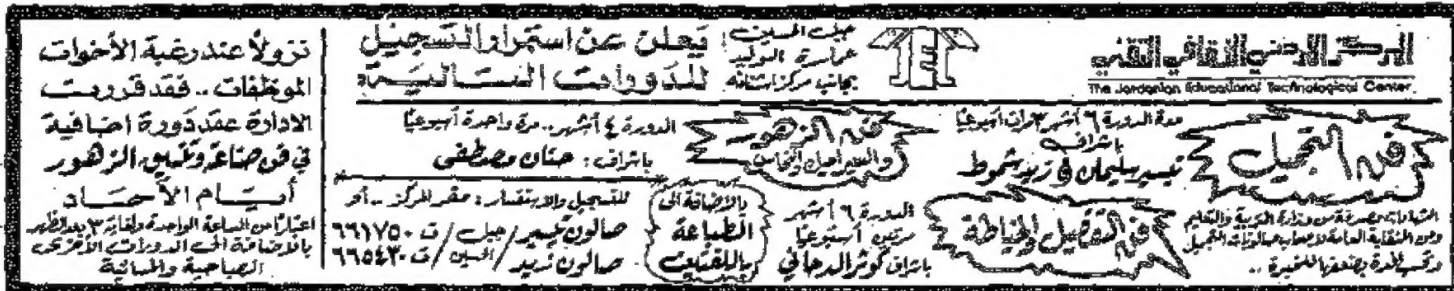 المركز الاردني الثقافي التقني
The Jordanian Educational Technological Center
جبل الحسين
عمارة الوليد
بجانب مركز
يعلن عن استمرار التسجيل
للدورات التالية:
فن التجميل
مدة الدورة ٦ أشهر ٣ مرات أسبوعيا
باشراف
تيسير سليمان زيد شموط
الشهادات مصدقة من وزارة التربية والتعليم
ومن النقابة العامة لاصحاب صالونات التجميل
فن الزهور
والسيراميك والنحاس
الدورة ٤ أشهر .. مرة واحدة أسبوعيا
باشراف : حنان مصطفى
فن التفصيل والخياطة
الدورة ٦ أشهر
مرتين أسبوعيا
باشراف كوثر الدجاني
بالاضافة الى
الطباعة
باللغتين
للتسجيل والاستفسار : مقر المركز .. أو
صالون تيسير / جبل / ت ٦٦١٧٥٠
صالون زيد / الحسين / ت ٦٦٥٤٣٠
نزولاً عند رغبة الأخوات
الموظفات .. فقد قررت
الادارة عقد دورة اضافية
في فن صناعة وتنسيق الزهور
أيام الأحاد
اعتباراً من الساعة الواحدة ولغاية ٣ بعد الظهر
بالاضافة الى الدورات الأخرى
الصباحية والمسائية